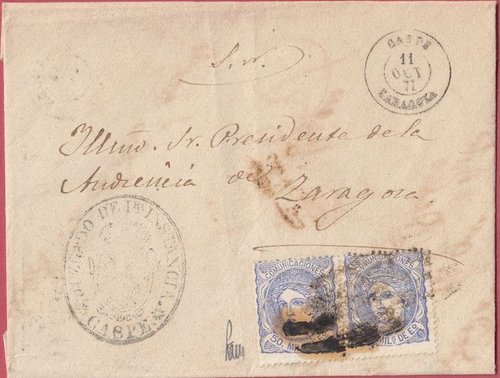 Sirr.
CASPE
11
OCT
ZARAGOZA
Illmo. Sr. Presidente de la
Audiencia de Zaragoza.
JUZGADO DE 1ra INSTANCIA
CASPE
COMUNICACIONES
50 MIL
COMUNICACIONES
MILs DE Eo